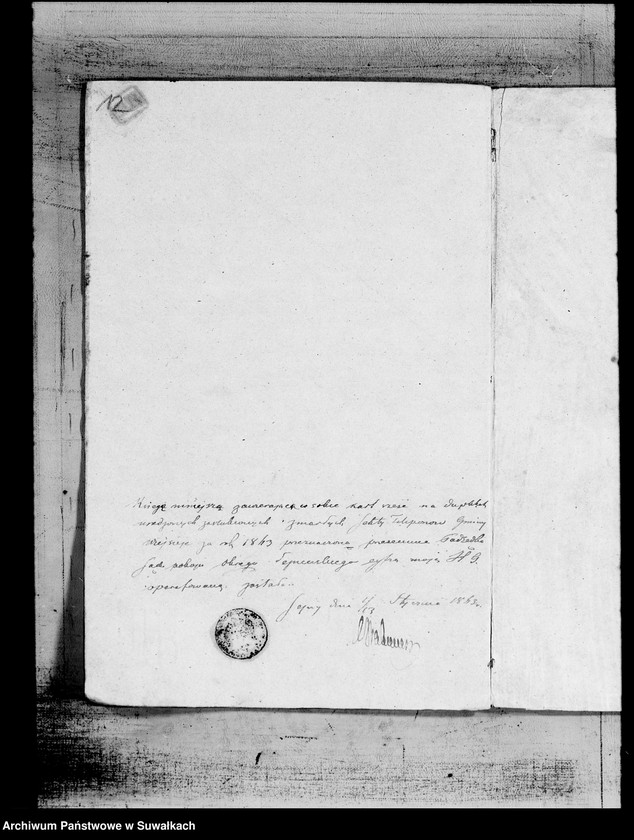 12
Księgę niniejszą zawierającą w sobie kart sześć na duplikat
urodzonych zaślubionych i zmarłych Sekty Filiponów Gminy
za rok 1863 przeznaczona,
Sądu pokoju Okręgu Sejneńskiego
oparafowaną została.
Sejny dnia 1/13 Stycznia 1863 r.
Archiwum Państwowe w Suwałkach